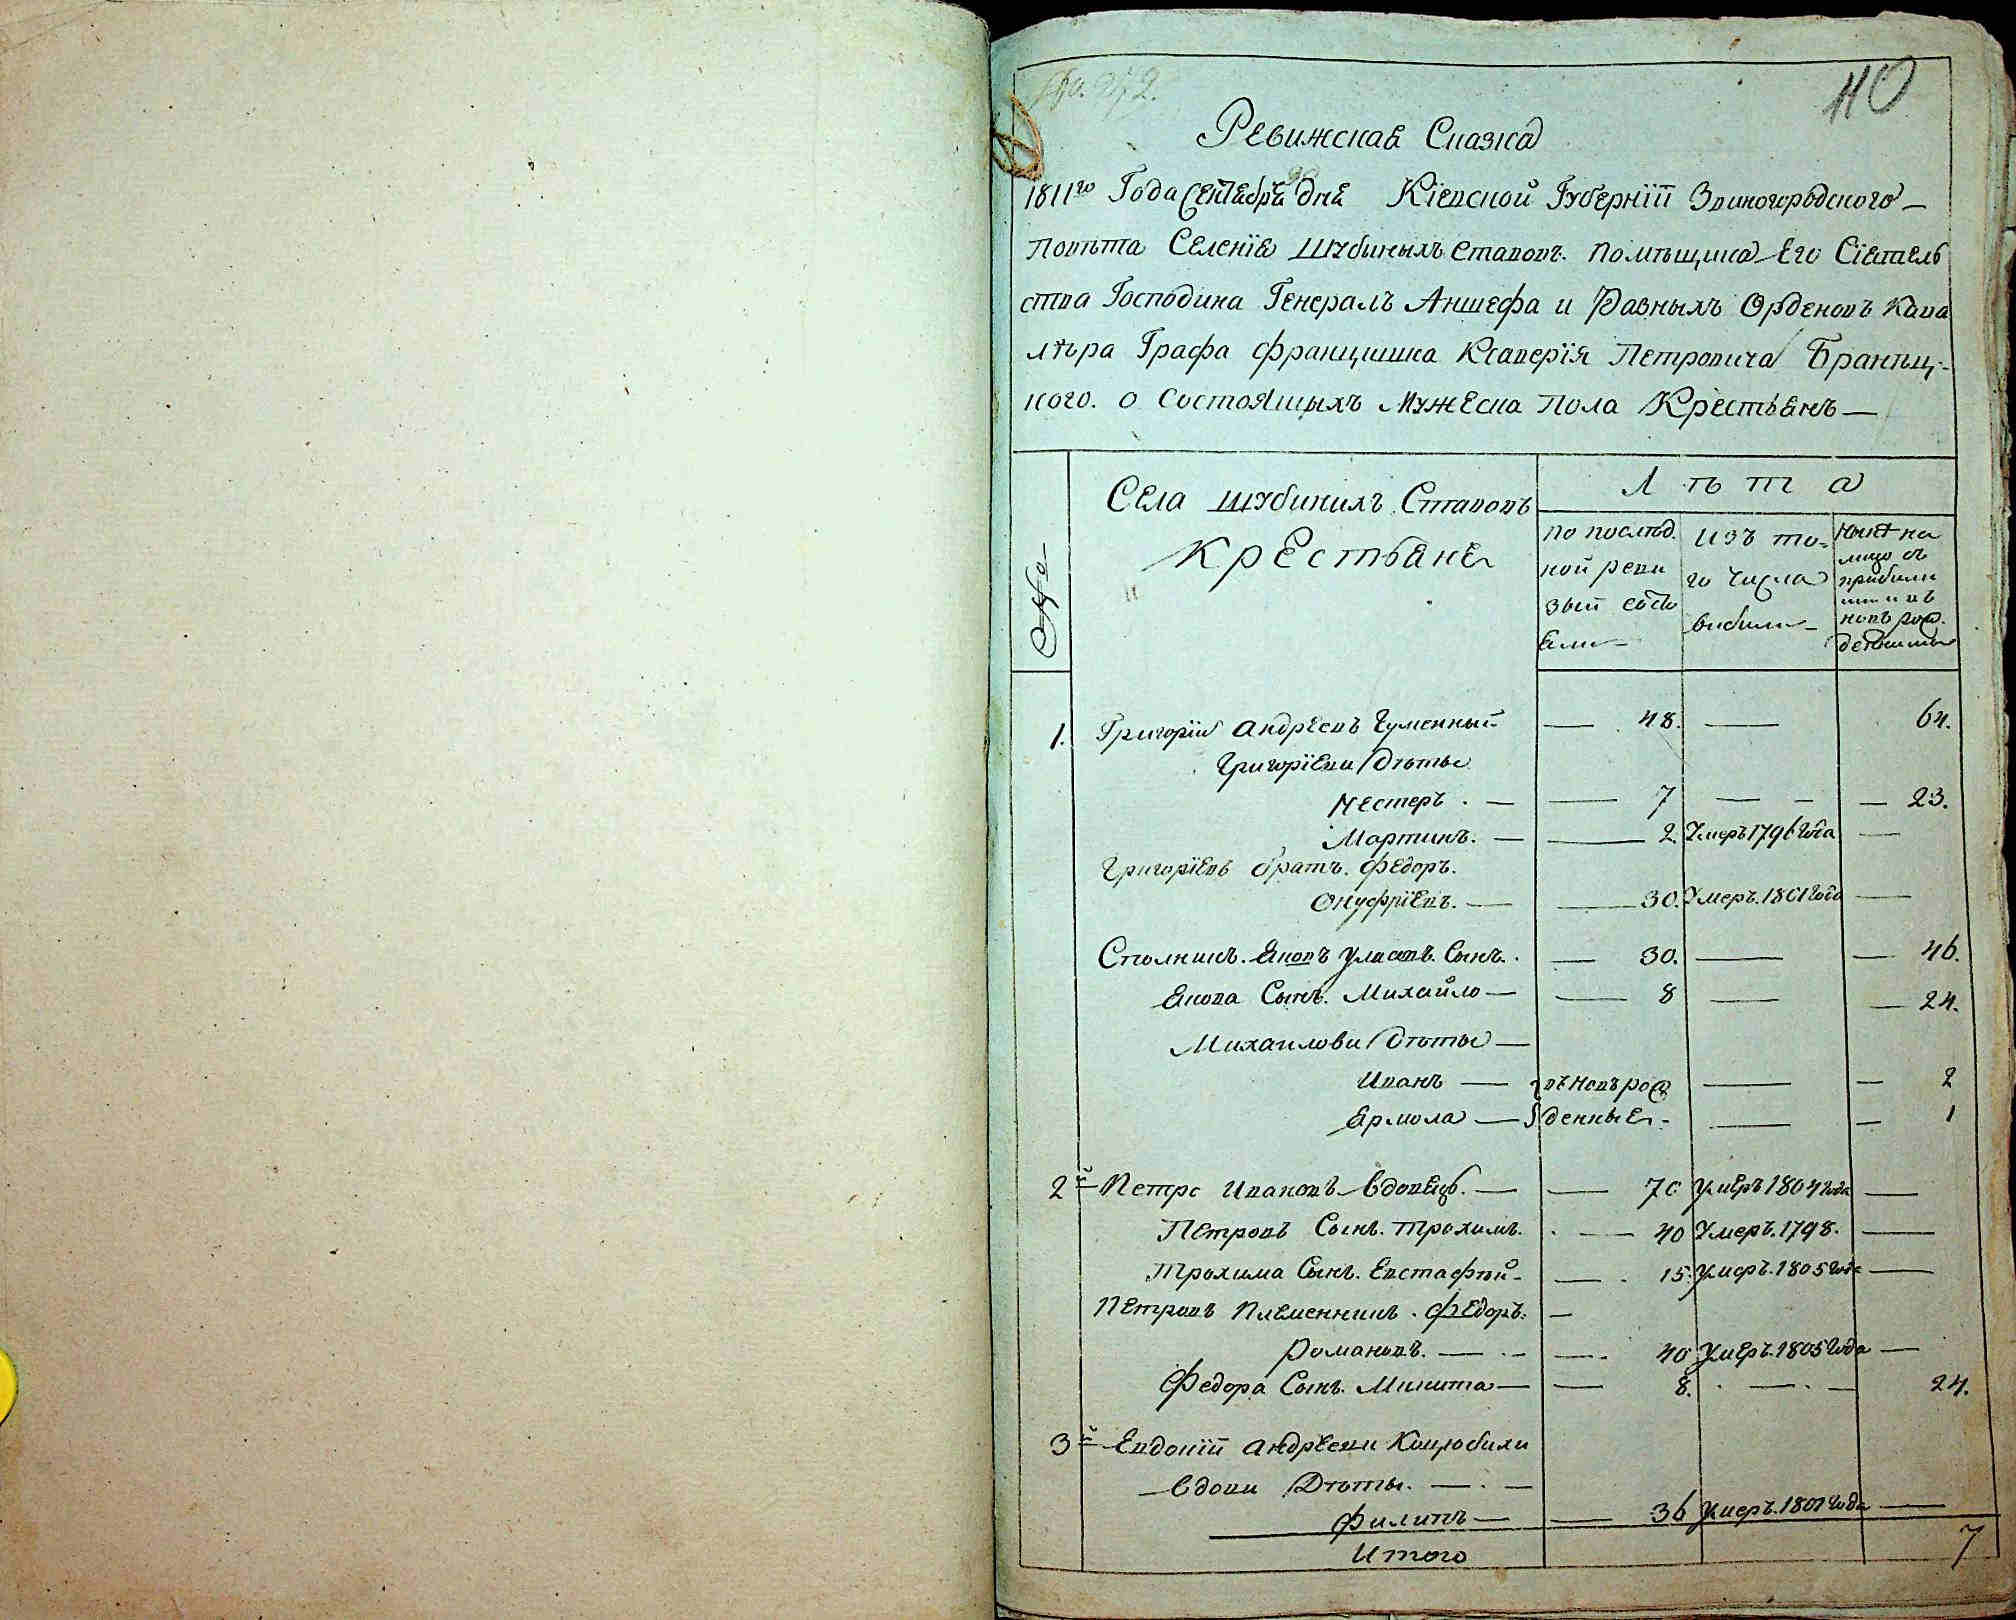 40
Ревижская Сказка
1811го Года Сентебра дня Кіевской Губерніи Звиногородского
Повѣта Селенія Шубиныхъ Ставовъ Помѣщика Его Сіятель
ства Господина Генералъ Аншефа и Разныхъ Орденовъ Кава
лѣра Графа Францишка Ксаверія Петровича Браниц-
кого. о Состоящыхъ Мужеска Пола Крестьянъ —
№
Села Шубинихъ Ставовъ
Крестьяне
Лѣта
По послѣд.
ной реви
зыи состо
яли
Изъ то-
го числа
вибили
Нынѣ на
лицо съ
прибили
ми и въ
новъ рож.
денними
1. Григорій Андреевъ Гуменный — 48. — 64.
Григоріеви Дѣты
Нестеръ. — 7 — 23.
Мартинъ. — 2. Умеръ 1796 Года —
Григоріевъ братъ. Федоръ.
Онуфріевъ. — 30. Умеръ. 1801 Года —
Столникъ. Яковъ Уласовъ. Сынъ. — 30. — 46.
Якова Сынъ. Михайло — 8 — 24.
Михаилови Дѣты —
Иванъ — въ новъ рож — 2
Ермола — денные. — 1
2й Петро Ивановъ Вдовецъ. — 70 Умеръ 1804 Года —
Петровъ Сынъ. Трохимъ. — 40 Умеръ. 1798. —
Трохима Сынъ. Евстафій — 15. Умеръ. 1805 Года —
Петровъ Племенникъ. Федоръ. —
Романовъ. — 40 Умеръ. 1805 Года —
Федора Сынъ. Микита — 8. — 24.
3й Евдокіи Андреевы Коцюбихи
Вдови Дѣты. —
Филипъ — 36 Умеръ. 1801 Года —
Итого 7